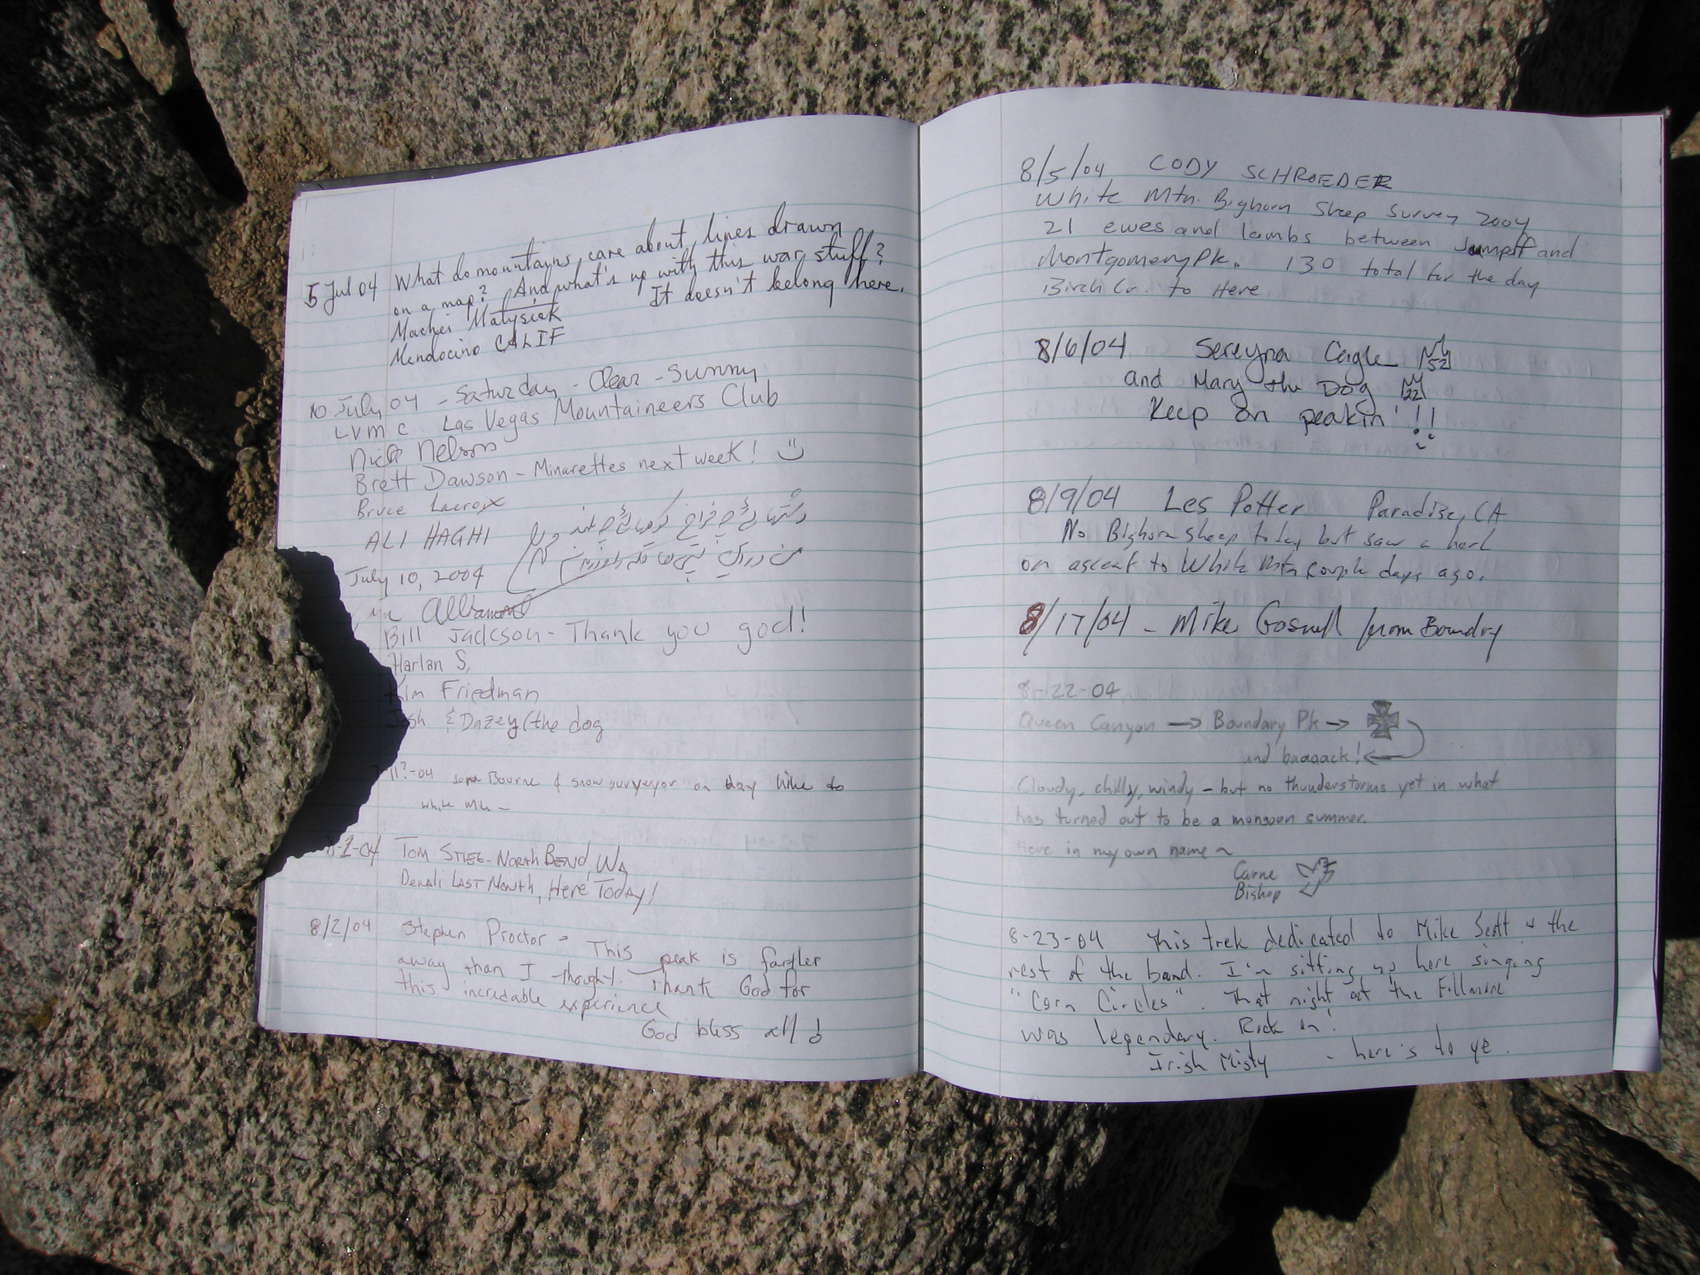 5 Jul 04 What do mountains, care about, lines drawn
on a map? And what's up with this war stuff?
It doesn't belong here.
Maciej Matysiak
Mendocino CALIF
10 July 04 - Saturday - Clear - Sunny
LVMC Las Vegas Mountaineers Club
Nick Nelson
Brett Dawson - Minarettes next week! :)
Bruce Lacroix
ALI HAGHI
July 10, 2004
Bill Jackson - Thank you god!
Harlan S.
Kim Friedman
& Dazey (the dog
-04 Bourne & snow surveyor on day hike to
White Mtn -
8-1-04 Tom - North Bend, WA
Denali Last Month, Here Today!
8/2/04 Stephen Proctor - This peak is farther
away than I thought. Thank God for
this incredable experience
God bless all!
8/5/04 CODY SCHROEDER
White Mtn. Bighorn Sheep Survey 2004
21 ewes and lambs between Jumpoff and
Montgomery Pk. 130 total for the day
Birch Cr. to Here
8/6/04 Sereyna Cagle
and Mary the Dog
Keep on peakin'!!!
8/9/04 Les Potter Paradise, CA
No Bighorn sheep today but saw a herd
on ascent to White Mtn couple days ago.
8/17/04 - Mike Goswell from Boundry
8-22-04
Queen Canyon → Boundary Pk →
and baaaack! ←
Cloudy, chilly, windy - but no thunderstorms yet in what
has turned out to be a monsoon summer.
Here in my own name ~
Carne
Bishop
8-23-04 This trek dedicated to Mike Scott & the
rest of the band. I'm sitting up here singing
"Corn Circles". That night at the Fillmore
was legendary. Rock on!
Irish Misty - here's to ye.